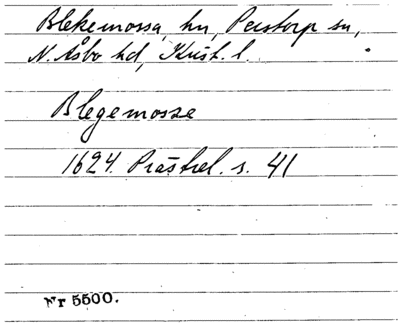 Blekemossa, hn, Perstorp sn,
N. Åsbo hd, Krist. l.
Blegemosse
1624. Prästrel. s. 41
Nr 5500.